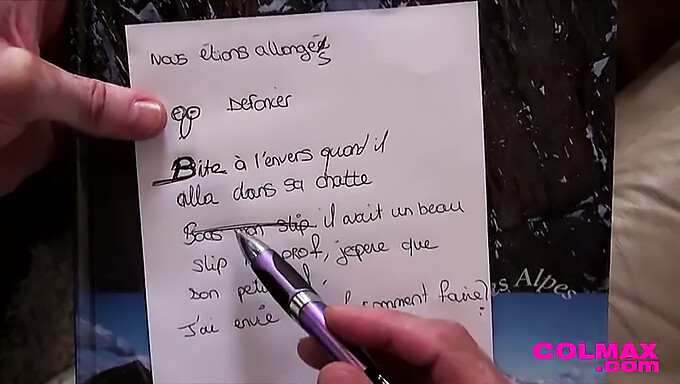 Nous étions allongés
Defoncer
Bite à l'envers quand il
alla dans sa chatte
Bons mon slip il avait un beau
slip prof, jepere que
son petit
J'ai envie comment faire?
es Alpes
COLMAX
.com